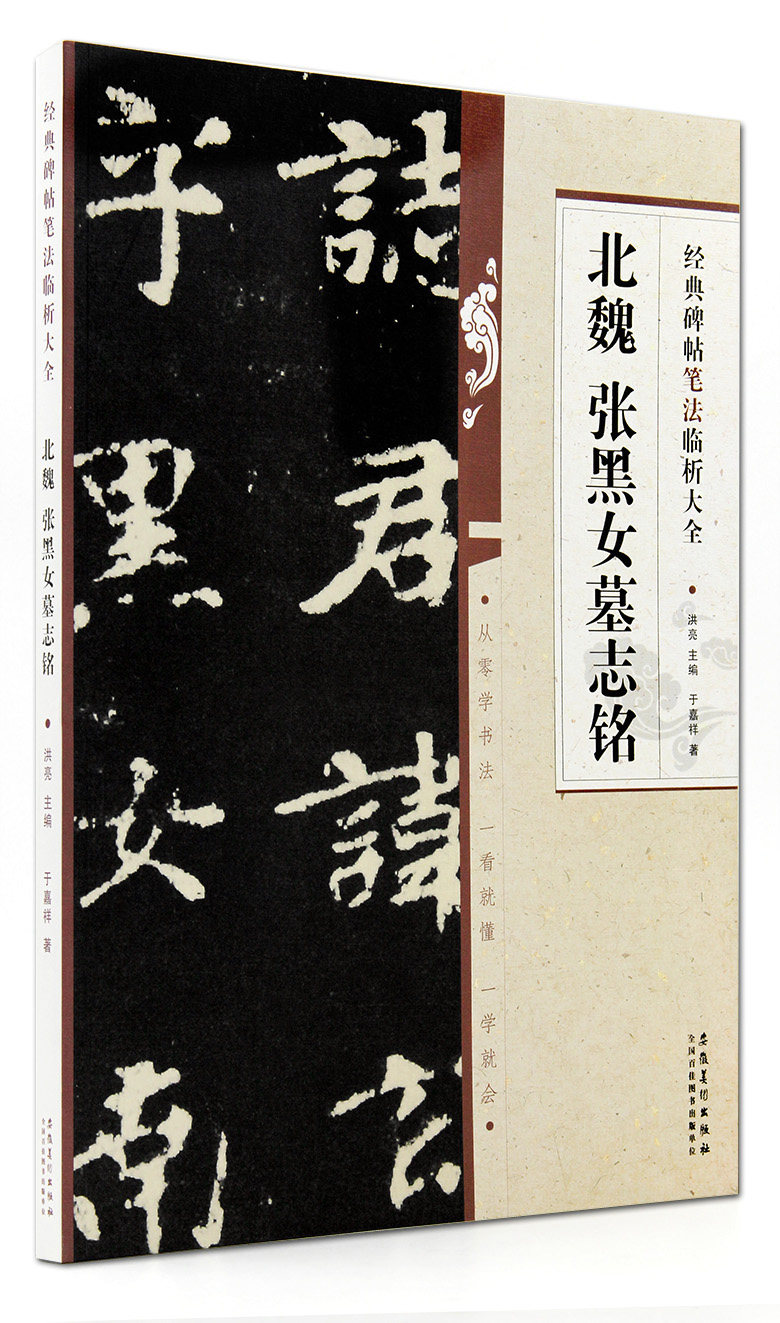 经典碑帖笔法临析大全
北魏 张黑女墓志铭
洪亮 主编 于嘉祥 著
安徽美术出版社
全国百佳图书出版单位
誌
君
諱
玄
字
黑
女
南
从零学书法 一看就懂 一学就会
经典碑帖笔法临析大全
北魏 张黑女墓志铭
洪亮 主编 于嘉祥 著
安徽美术出版社
全国百佳图书出版单位